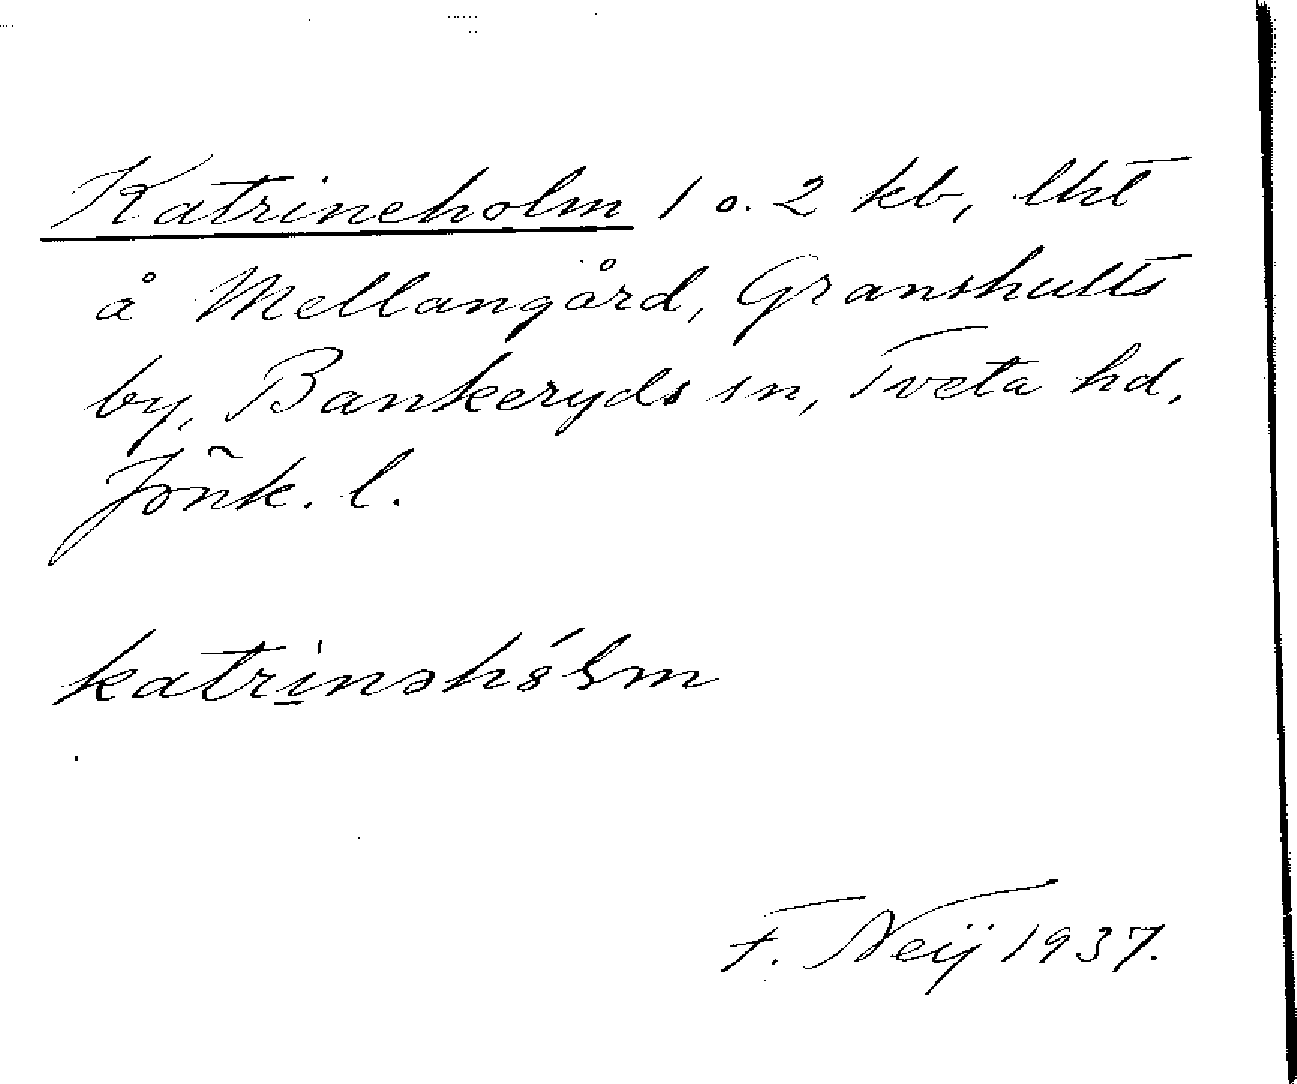 Katrineholm 1 o. 2 kb, lht
å Mellangård, Granshults
by, Bankeryds sn, Tveta hd,
Jönk. l.
katrinəhólm
F. Neij 1937.